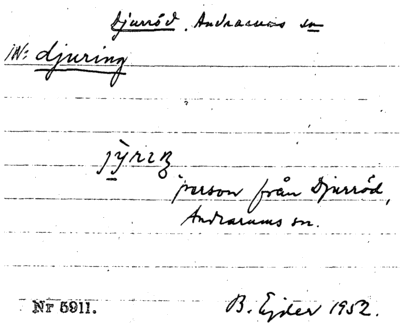 Djurröd, Andrarums sn
IN: djuring
person från Djurröd,
Andrarums sn.
Nr 5911. B. Ejder 1952.